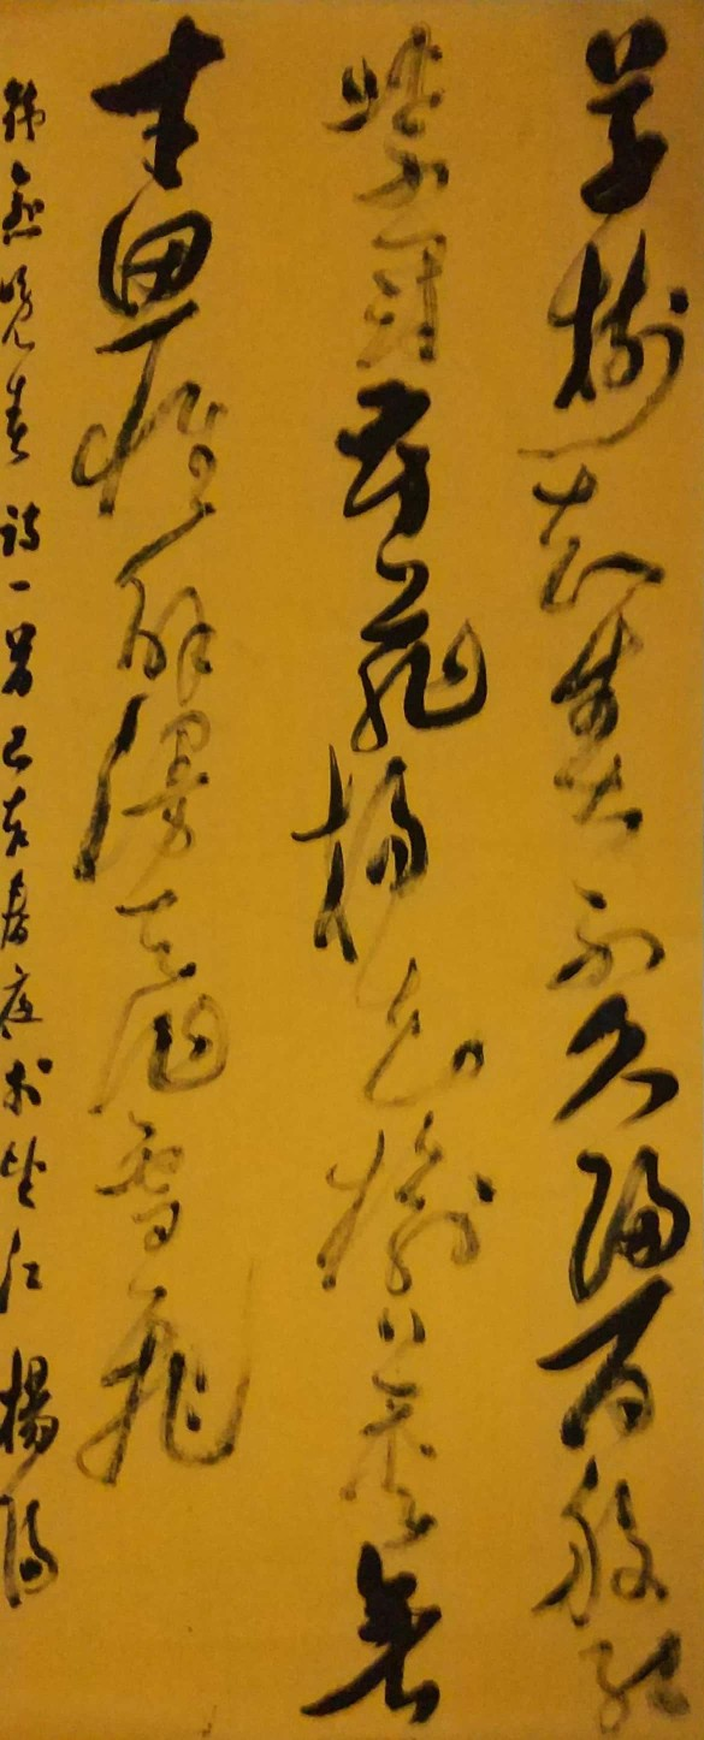 草樹知春不久歸百般紅
紫鬥芳菲楊花榆莢無
才思惟解漫天作雪飛
韓愈晚春詩一首己亥春於江楊陽